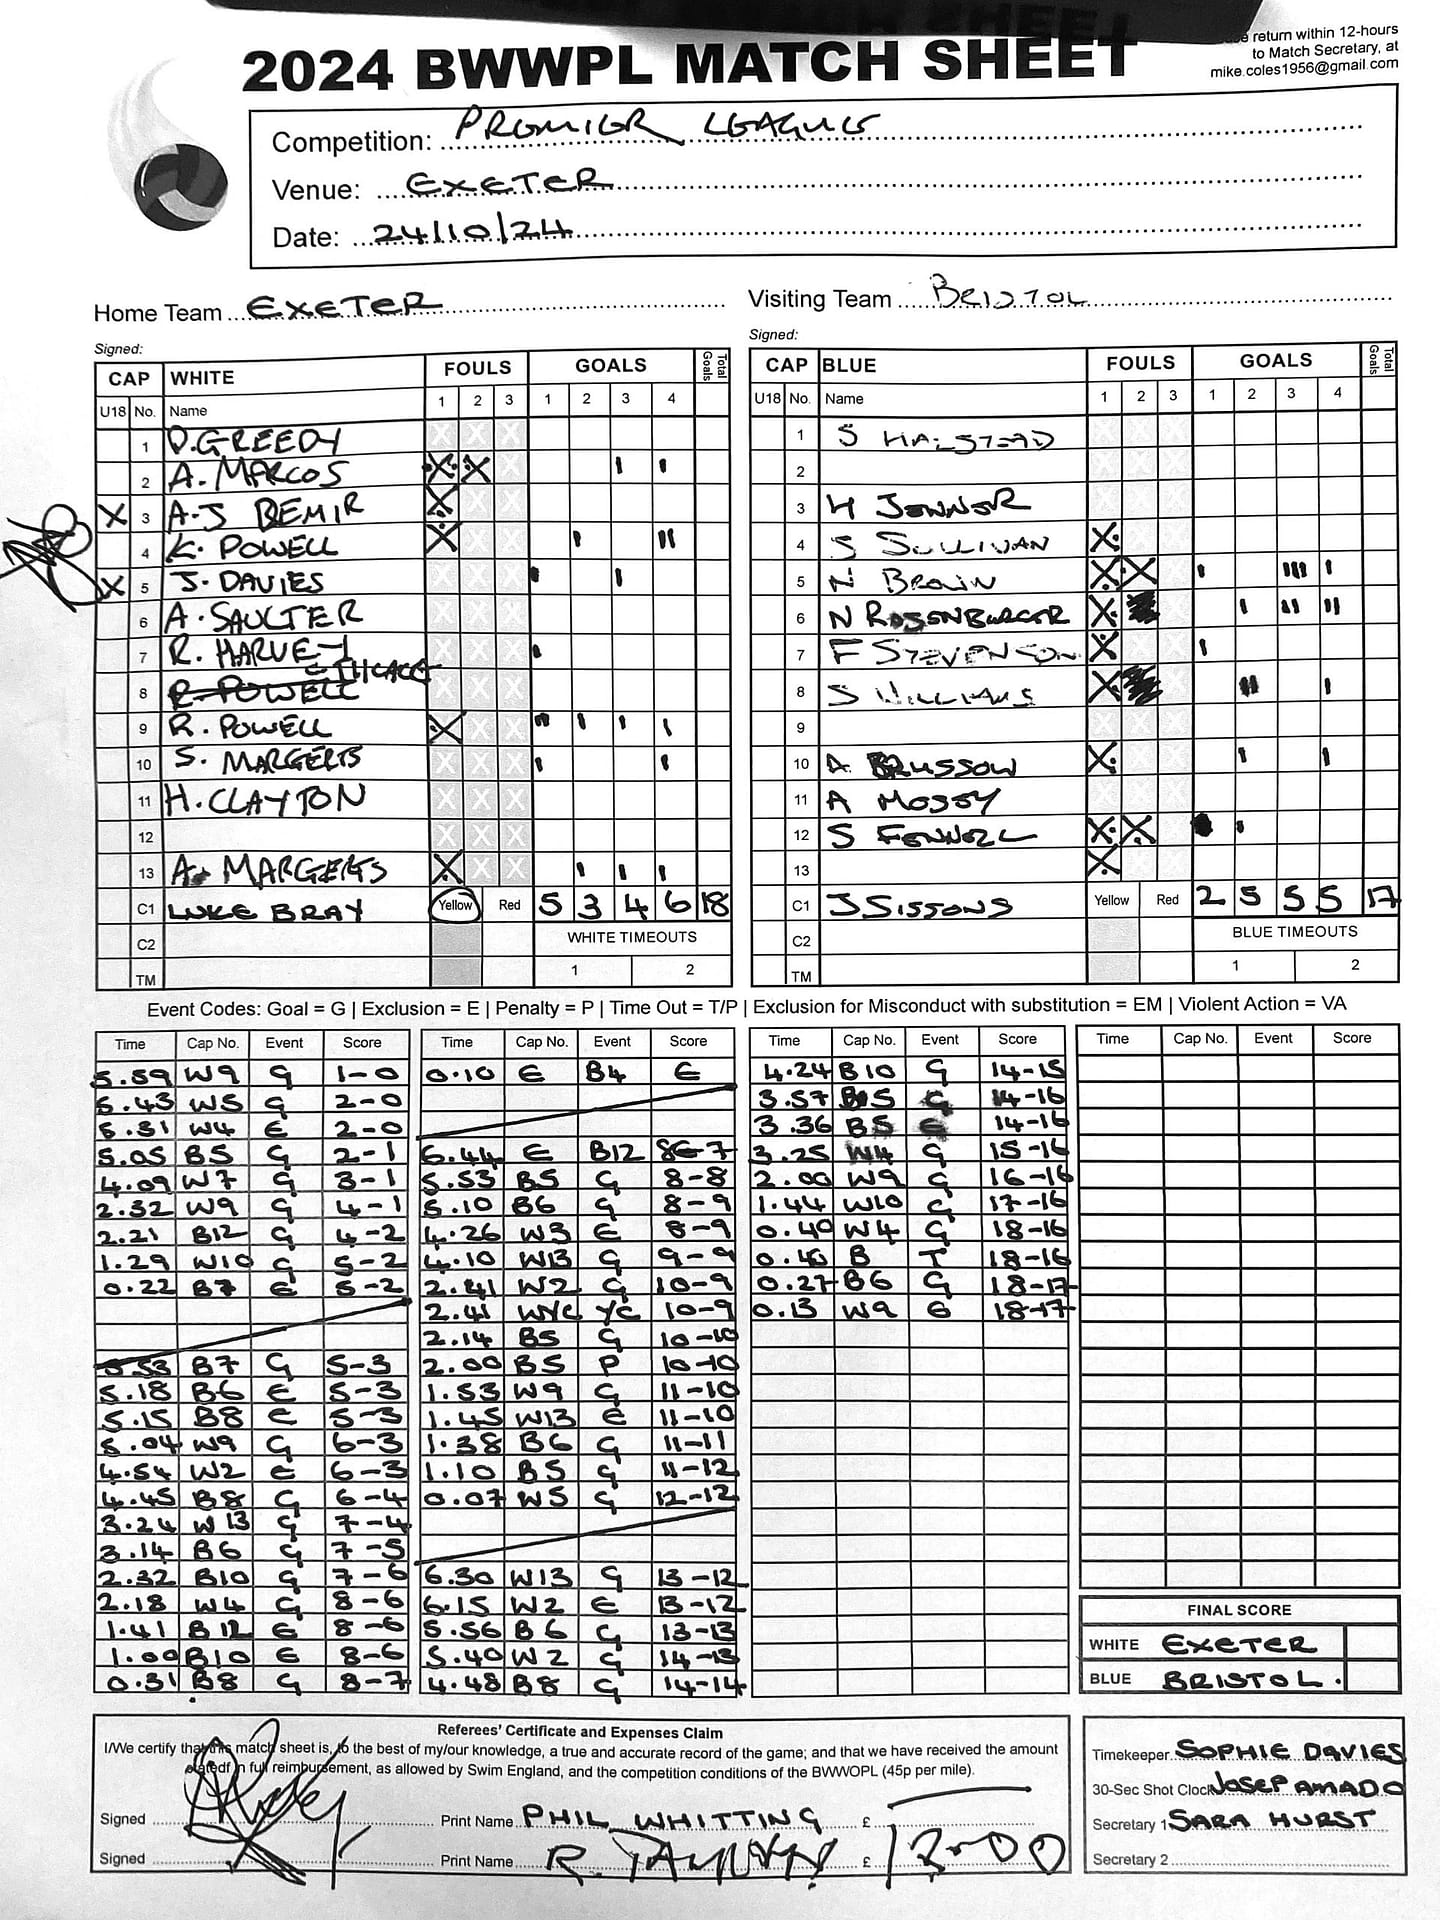 2024 BWWPL MATCH SHEET
return within 12-hours
to Match Secretary, at
mike.coles1956@gmail.com
Competition: PREMIER LEAGUE
Venue: EXETER
Date: 24/10/24
Home Team EXETER
Visiting Team BRISTOL
Signed:
Signed:
CAP WHITE FOULS GOALS Total Goals
U18 No. Name 1 2 3 1 2 3 4
1 D. GREEDY
2 A. MARCOS
X 3 A-J BEMIR
4 K. POWELL
X 5 J. DAVIES
6 A. SAULTER
7 R. HARVEY
8 R. POWELL
9 R. POWELL
10 S. MARGERTS
11 H. CLAYTON
12
13 A. MARGERTS
C1 LUKE BRAY Yellow Red 5 3 4 6 18
C2 WHITE TIMEOUTS
TM 1 2
CAP BLUE FOULS GOALS Total Goals
U18 No. Name 1 2 3 1 2 3 4
1 S HALSTEAD
2
3 H JENNER
4 S SULLIVAN
5 N BRAIN
6 N ROSENBURGER
7 F STEVENSON
8 S WILLIAMS
9
10 A BRUSSOW
11 A MOSSY
12 S FENNELL
13
C1 J SISSONS Yellow Red 2 5 5 5 17
C2 BLUE TIMEOUTS
TM 1 2
Event Codes: Goal = G | Exclusion = E | Penalty = P | Time Out = T/P | Exclusion for Misconduct with substitution = EM | Violent Action = VA
Time Cap No. Event Score
5.59 W9 G 1-0
5.43 W5 G 2-0
5.31 W4 E 2-0
5.05 B5 G 2-1
4.09 W7 G 3-1
2.32 W9 G 4-1
2.21 B12 G 4-2
1.29 W10 G 5-2
0.22 B7 E 5-2
5.53 B7 G 5-3
5.18 B6 E 5-3
5.15 B8 E 5-3
5.04 W9 G 6-3
4.54 W2 E 6-3
4.45 B8 G 6-4
3.24 W13 G 7-4
3.14 B6 G 7-5
2.32 B10 G 7-6
2.18 W4 G 8-6
1.41 B12 E 8-6
1.00 B10 E 8-6
0.31 B8 G 8-7
Time Cap No. Event Score
0.10 E B4 E
6.44 E B12 8-7
5.53 B5 G 8-8
5.10 B6 G 8-9
4.26 W3 E 8-9
4.10 W13 G 9-9
2.41 W2 G 10-9
2.41 WYC YC 10-9
2.14 B5 G 10-10
2.00 B5 P 10-10
1.53 W9 G 11-10
1.45 W13 E 11-10
1.38 B6 G 11-11
1.10 B5 G 11-12
0.07 W5 G 12-12
6.30 W13 G 13-12
6.15 W2 E 13-12
5.56 B6 G 13-13
5.40 W2 G 14-13
4.48 B8 G 14-14
Time Cap No. Event Score
4.24 B10 G 14-15
3.57 B5 G 14-16
3.36 B5 E 14-16
3.25 W4 G 15-16
2.00 W9 G 16-16
1.44 W10 G 17-16
0.40 W4 G 18-16
0.40 B T 18-16
0.27 B6 G 18-17
0.13 W9 E 18-17
Time Cap No. Event Score
FINAL SCORE
WHITE EXETER
BLUE BRISTOL.
Referees' Certificate and Expenses Claim
I/We certify that this match sheet is, to the best of my/our knowledge, a true and accurate record of the game; and that we have received the amount
stated in full reimbursement, as allowed by Swim England, and the competition conditions of the BWWOPL (45p per mile).
Signed Print Name PHIL WHITTING £
Signed Print Name R. £ 13-00
Timekeeper SOPHIE DAVIES
30-Sec Shot Clock JOSEP AMADO
Secretary 1 SARA HURST
Secretary 2